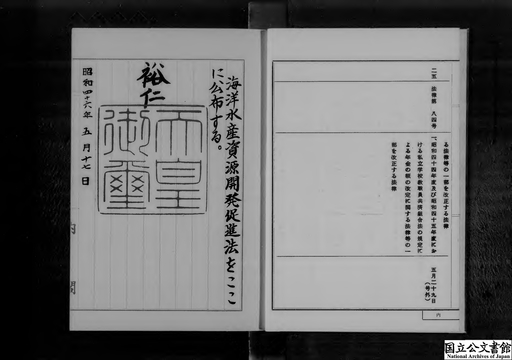 二五 法律第 八四号
る法律等の一部を改正する法律
(昭和四十四年度及び昭和四十五年度にお
ける私立学校教職員共済組合法の規定に
よる年金の額の改定に関する法律等の一
部を改正する法律
五月二十九日
(号外)
六
海洋水産資源開発促進法をここ
に公布する。
裕仁
天皇
御璽
昭和四十六年 五月十七日
国立公文書館
National Archives of Japan